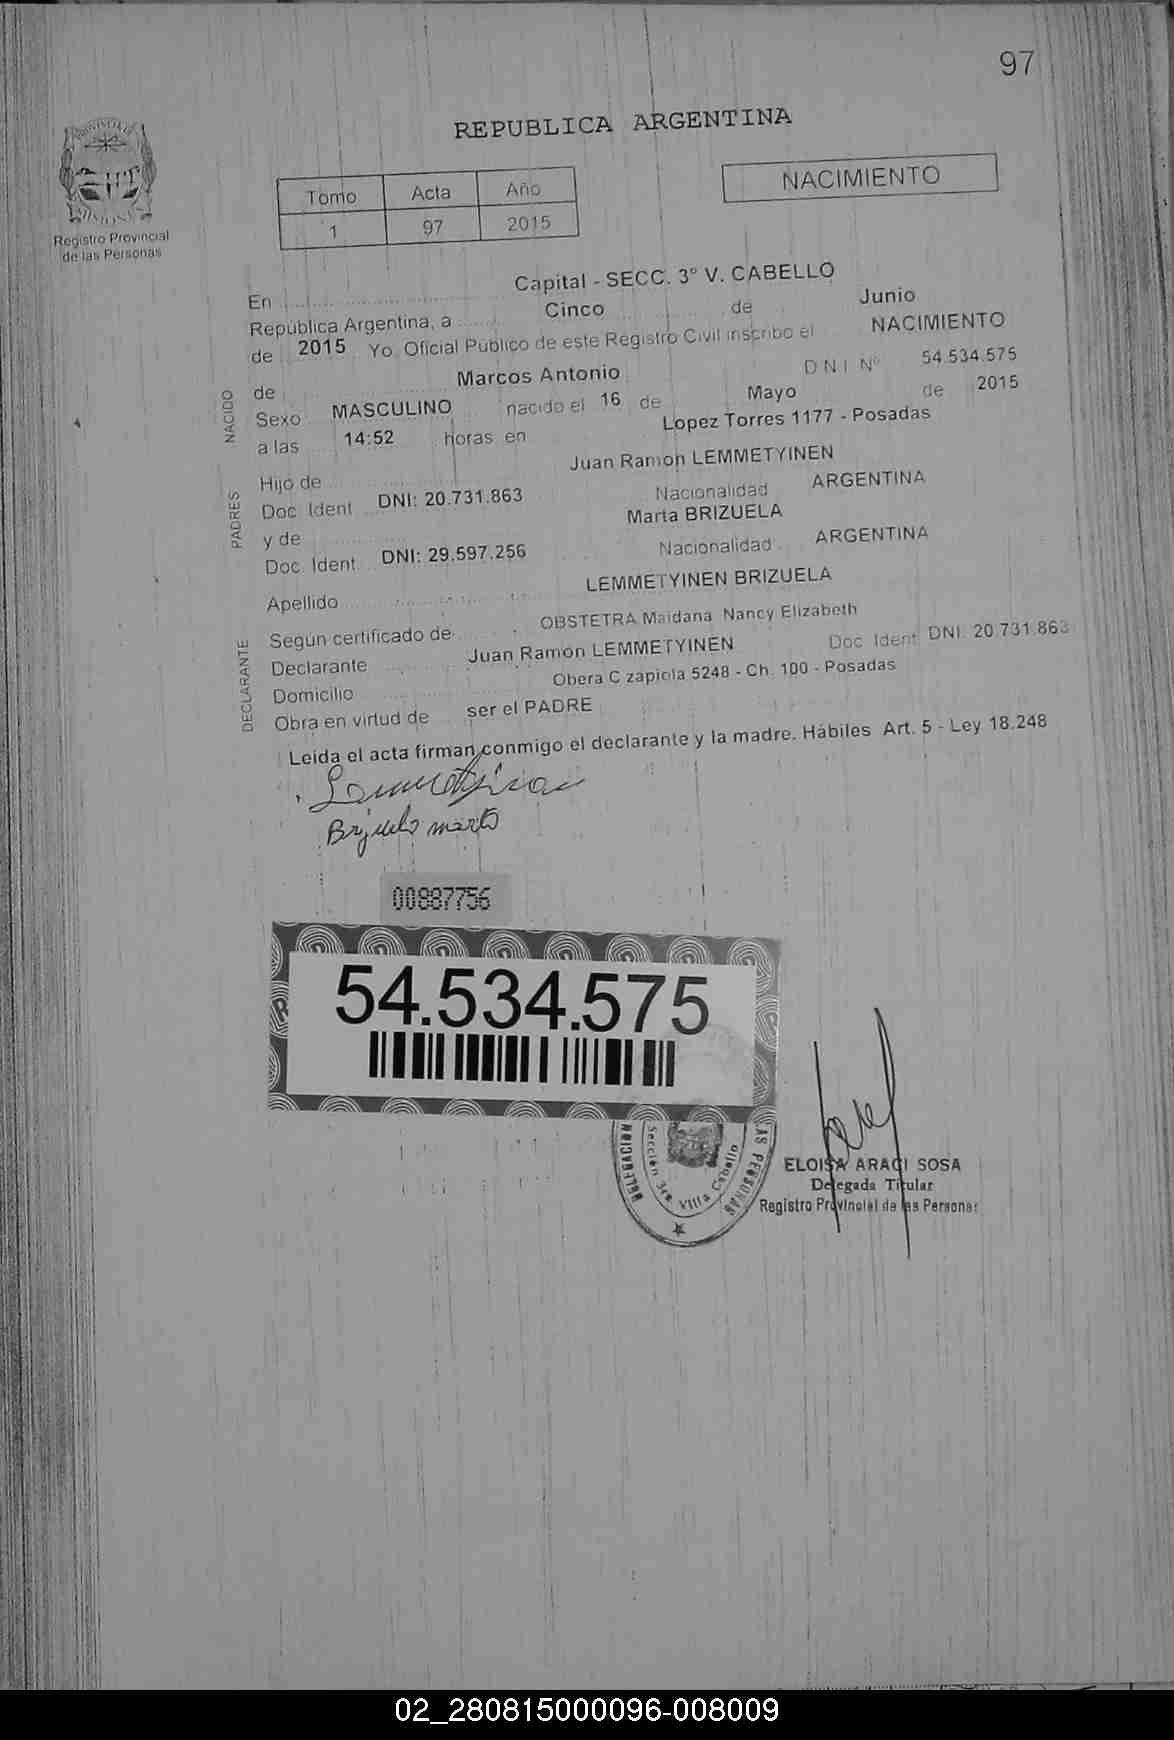 97
REPUBLICA ARGENTINA
NACIMIENTO
Tomo Acta Año
1 97 2015
Registro Provincial
de las Personas
En Capital - SECC. 3° V. CABELLO
República Argentina, a Cinco de Junio
de 2015 Yo, Oficial Público de este Registro Civil inscribo el NACIMIENTO
NACIDO
de Marcos Antonio D N I Nº 54.534.575
Sexo MASCULINO nacido el 16 de Mayo de 2015
a las 14:52 horas en Lopez Torres 1177 - Posadas
PADRES
Hijo de Juan Ramon LEMMETYINEN
Doc. Ident. DNI: 20.731.863 Nacionalidad ARGENTINA
y de Marta BRIZUELA
Doc. Ident. DNI: 29.597.256 Nacionalidad ARGENTINA
Apellido LEMMETYINEN BRIZUELA
DECLARANTE
Según certificado de OBSTETRA Maidana Nancy Elizabeth
Declarante Juan Ramon LEMMETYINEN Doc. Ident. DNI. 20.731.863
Domicilio Obera C zapiola 5248 - Ch. 100 - Posadas
Obra en virtud de ser el PADRE
Leida el acta firman conmigo el declarante y la madre. Hábiles Art. 5 - Ley 18.248
Brizuela marta
00887756
54.534.575
Sección 3ra. Villa Cabello
ELOISA ARACI SOSA
Delegada Titular
Registro Provincial de las Personas
02_280815000096-008009